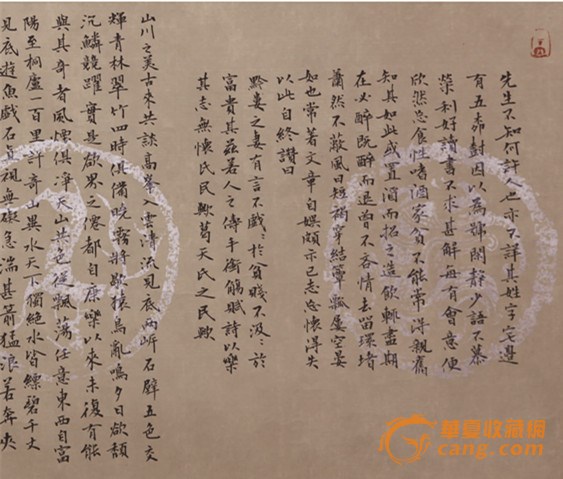 先生不知何許人也亦不詳其姓字宅邊
有五柳樹因以為號閑靜少語不慕
榮利好讀書不求甚解每有會意便
欣然忘食性嗜酒家貧不能常得親舊
知其如此或置酒而招之造飲輒盡期
在必醉既醉而退曾不吝情去留環堵
蕭然不蔽風日短褐穿結簞瓢屢空晏
如也常著文章自娛頗示己志忘懷得失
以此自終讚曰
黔婁之妻有言不戚〻於貧賤不汲〻於
富貴其茲若人之儔乎銜觴賦詩以樂
其志無懷氏民歟葛天氏之民歟
山川之美古來共談高峯入雲清流見底兩岸石壁五色交
輝青林翠竹四時俱備曉霧將歇猿鳥亂鳴夕日欲頹
沉鱗競躍實是欲界之仙都自康樂以來未復有能
與其奇者風煙俱淨天山共色從飄蕩任意東西自富
陽至桐廬一百里許奇山異水天下獨絕水皆縹碧千丈
見底遊魚戲石直視無礙急湍甚箭猛浪若奔夾
華夏收藏網
cang.com